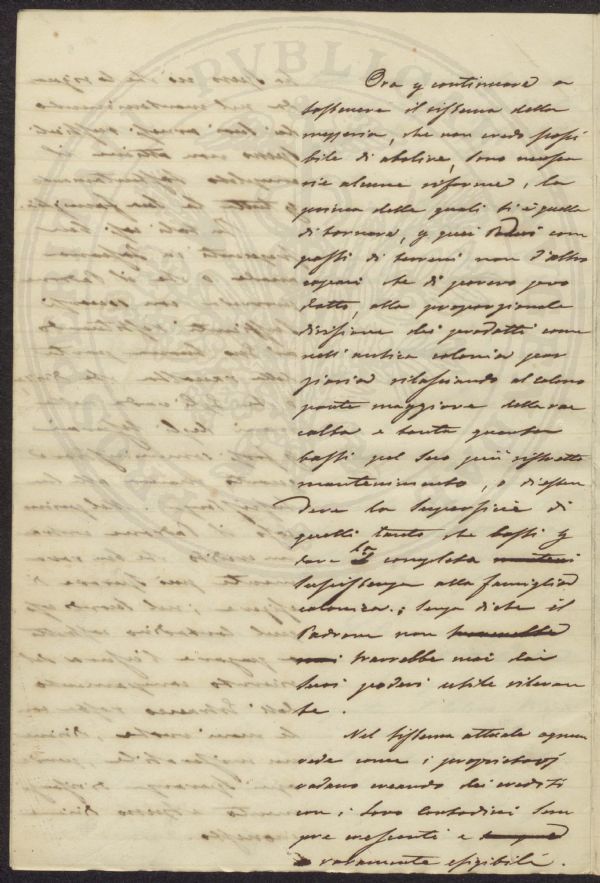 Ora p continuare a
sostenere il sistema della
mezzeria, che non credo possi
bile di abolire, sono necessa
rie alcune riforme, la
prima delle quali si è quella
di tornare, p quei Poderi com
posti di terreni non d'altro
capaci che di povero pro
dotto, alla proporzionale
divisione dei prodotti come
nell'antica colonia par
ziaria rilasciando al colono
parte maggiore della rac
colta e tanta quanta
basti pel suo più ristretto
mantenimento, o disten
dere la superficie di
quelli tanto che basti p
dare la completa
sussistenza alla famiglia
colonica; senza di che il
Padrone non
trarrebbe mai dai
suoi poderi utile rilevan
te.
Nel sistema attuale ognun
vede come i proprietarj
vadano creando dei crediti
con i loro contadini sem
pre crescenti e
raramente esigibili.
PVBLIC